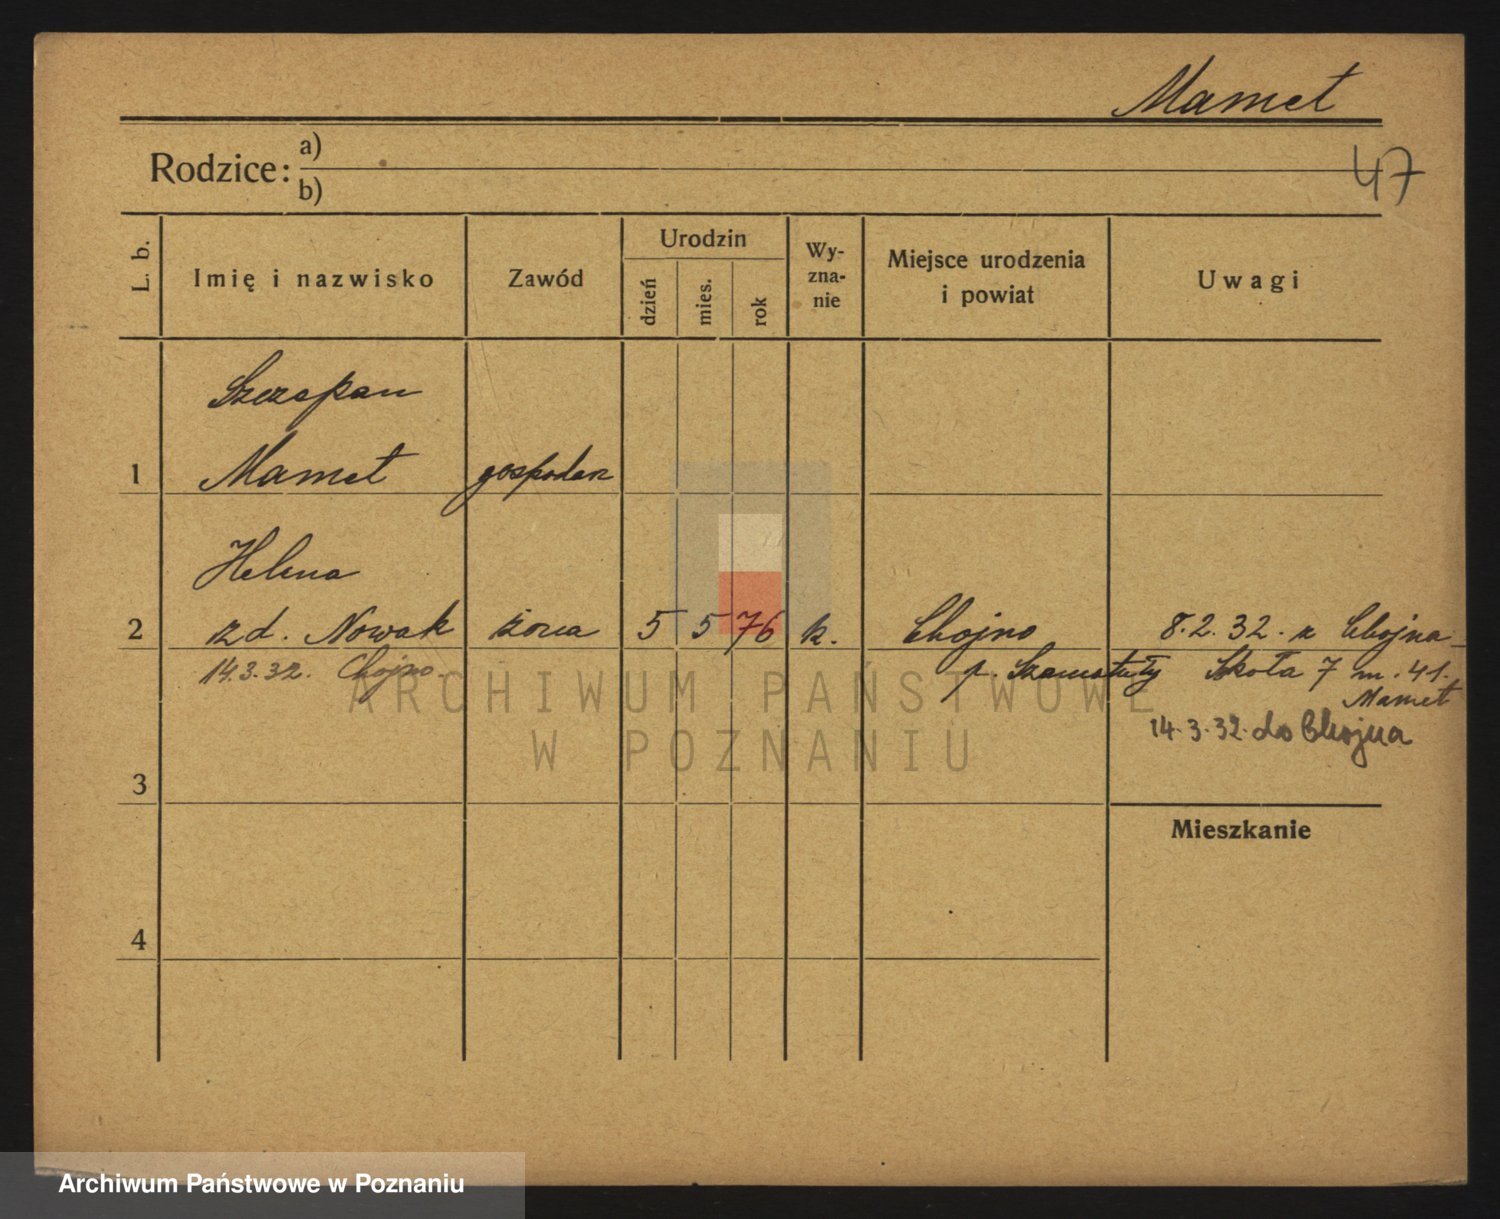 Mamet
47
Rodzice: a)
b)
L. b.
Imię i nazwisko
Zawód
Urodzin
dzień
mies.
rok
Wy-
zna-
nie
Miejsce urodzenia
i powiat
Uwagi
Szczepan
1 Mamet gospodarz
Helena
2 zd. Nowak żona 5 5 76 k. Chojno 8.2.32. z Chojna
14.3.32. Chojno. p. Szamotuły Skoła 7 m. 41.
Mamet
14.3.32. do Chojna
3
Mieszkanie
4
ARCHIWUM PAŃSTWOWE
W POZNANIU
Archiwum Państwowe w Poznaniu